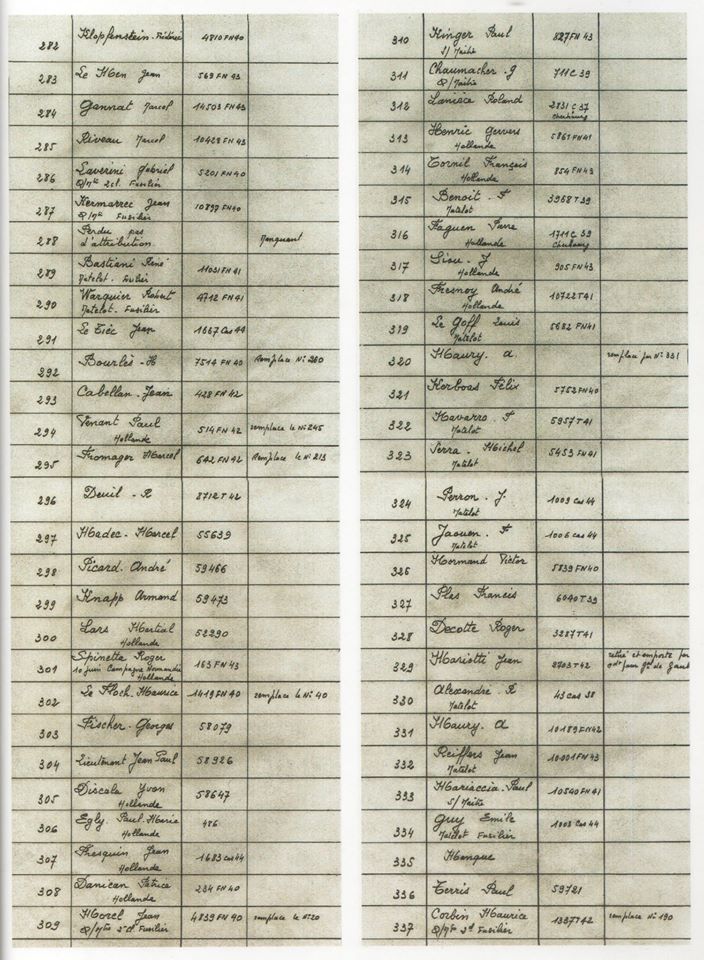 282 Klopfenstein. Frédéric 4810 FN40
283 Le Hen Jean 569 FN 43
284 Gannat Marcel 14503 FN43
285 Riveau Marcel 10429 FN43
286 Laverini Gabriel 5201 FN40
Q/Mtre 2cl. Fusilier
287 Kermarrec Jean 10897 FN40
Q/Mtre Fusilier
288 Perdu pas Manquant
d'attribution
289 Bastiani René 11031 FN41
Matelot. Fusilier
290 Warquier Robert 4712 FN41
Matelot. Fusilier
291 Le Tiéc Jean 1667 Cas 44
292 Bourlès - H 7514 FN 40 Remplace N° 280
293 Cabellan. Jean 428 FN 42
294 Venant Paul 514 FN 42 remplace le N° 245
Hollande
295 Fromager Marcel 642 FN 42 Remplace le N° 213
296 Deuil - R 8712 T 42
297 Hadec. Marcel 55639
298 Picard. André 59466
299 Knapp Armand 59473
300 Lars Martial 52290
Hollande
301 Spinetta Roger 163 FN 43
10 juin Campagne Normandie
Hollande
302 Le Floch. Maurice 1419 FN 40 remplace le N° 40
303 Fischer. Georges 58079
304 Lieutenant Jean Paul 58926
305 Discala Yvon 58647
Hollande
306 Egly. Paul. Marie 486
Hollande
307 Fresquin Jean 1683 cas 44
Hollande
308 Danican Patrice 234 FN 40
Hollande
309 Morel Jean 4839 FN 40 remplace le N° 20
Q/Mtre 2e cl Fusilier
310 Kinger Paul 827 FN 43
S/ Maître
311 Chaumacher. G 711 C 39
Q/ Maître
312 Lanisce Roland 2831 C 37
Cherbourg
313 Henric Gervers 5861 FN41
Hollande
314 Tornil François 854 FN 43
Hollande
315 Benoit. F 3968 T 39
Matelot
316 Faguen Pierre 1711 C 39
Hollande Cherbourg
317 Siou. J 905 FN 43
Hollande
318 Fresnoy André 10722 T41
Hollande
319 Le Goff Louis 5682 FN41
Matelot
320 Maury. A remplacé par N° 331
321 Kerboas Félix 5752 FN40
322 Navarro. F 5957 T41
Matelot
323 Serra. Michel 5453 FN 41
Matelot
324 Perron. J. 1009 Cas 44
Matelot
325 Jaouen. F 1006 cas 44
Matelot
326 Normand Victor 5839 FN40
327 Plas Francis 6040 T39
328 Decotte Roger 3287 T41
329 Mariotti Jean 8703 T42 retiré et emporté par
330 Alexandre. R 43 cas 38
Matelot
331 Maury. A 10189 FN42
332 Reiffers Jean 10001 FN43
Matelot
333 Mariaccia. Paul 10540 FN41
S/ Maître
334 Guy Emile 1003 Cas 44
Matelot Fusilier
335 Manque
336 Terris Paul 59721
337 Corbin Maurice 1337 T42 remplace N° 190
Q/Mtre 2e Fusilier